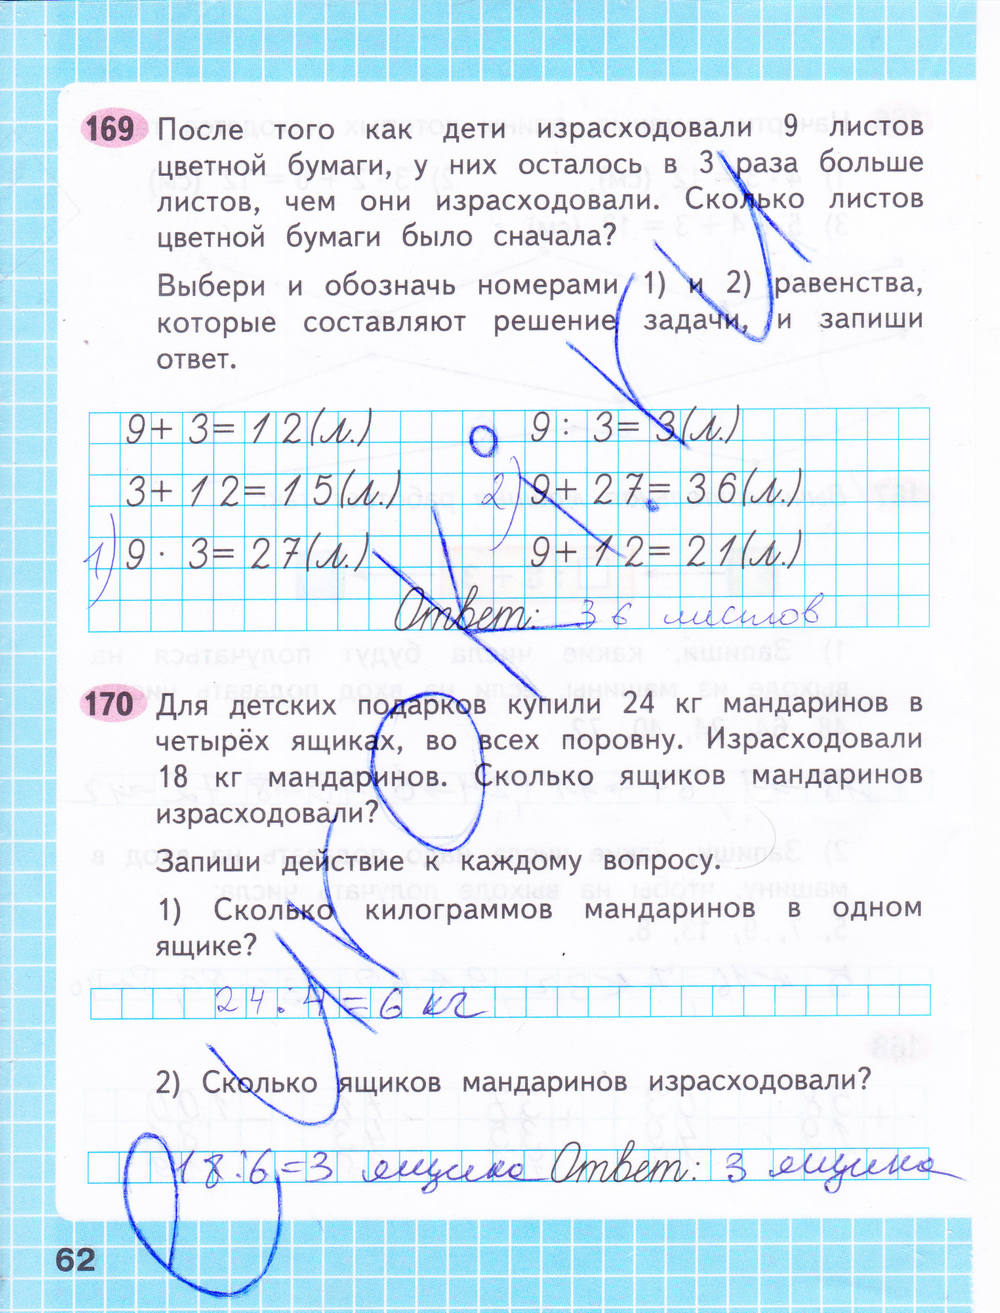 169 После того как дети израсходовали 9 листов
цветной бумаги, у них осталось в 3 раза больше
листов, чем они израсходовали. Сколько листов
цветной бумаги было сначала?
Выбери и обозначь номерами 1) и 2) равенства,
которые составляют решение задачи, и запиши
ответ.
9+ 3= 12(л.) 9 : 3= 3(л.)
3+ 12= 15(л.) 2) 9+ 27= 36(л.)
1) 9 · 3= 27(л.) 9+ 12= 21(л.)
Ответ: 36 листов
170 Для детских подарков купили 24 кг мандаринов в
четырёх ящиках, во всех поровну. Израсходовали
18 кг мандаринов. Сколько ящиков мандаринов
израсходовали?
Запиши действие к каждому вопросу.
1) Сколько килограммов мандаринов в одном
ящике?
24:4=6 кг
2) Сколько ящиков мандаринов израсходовали?
18:6=3 ящика Ответ: 3 ящика
62